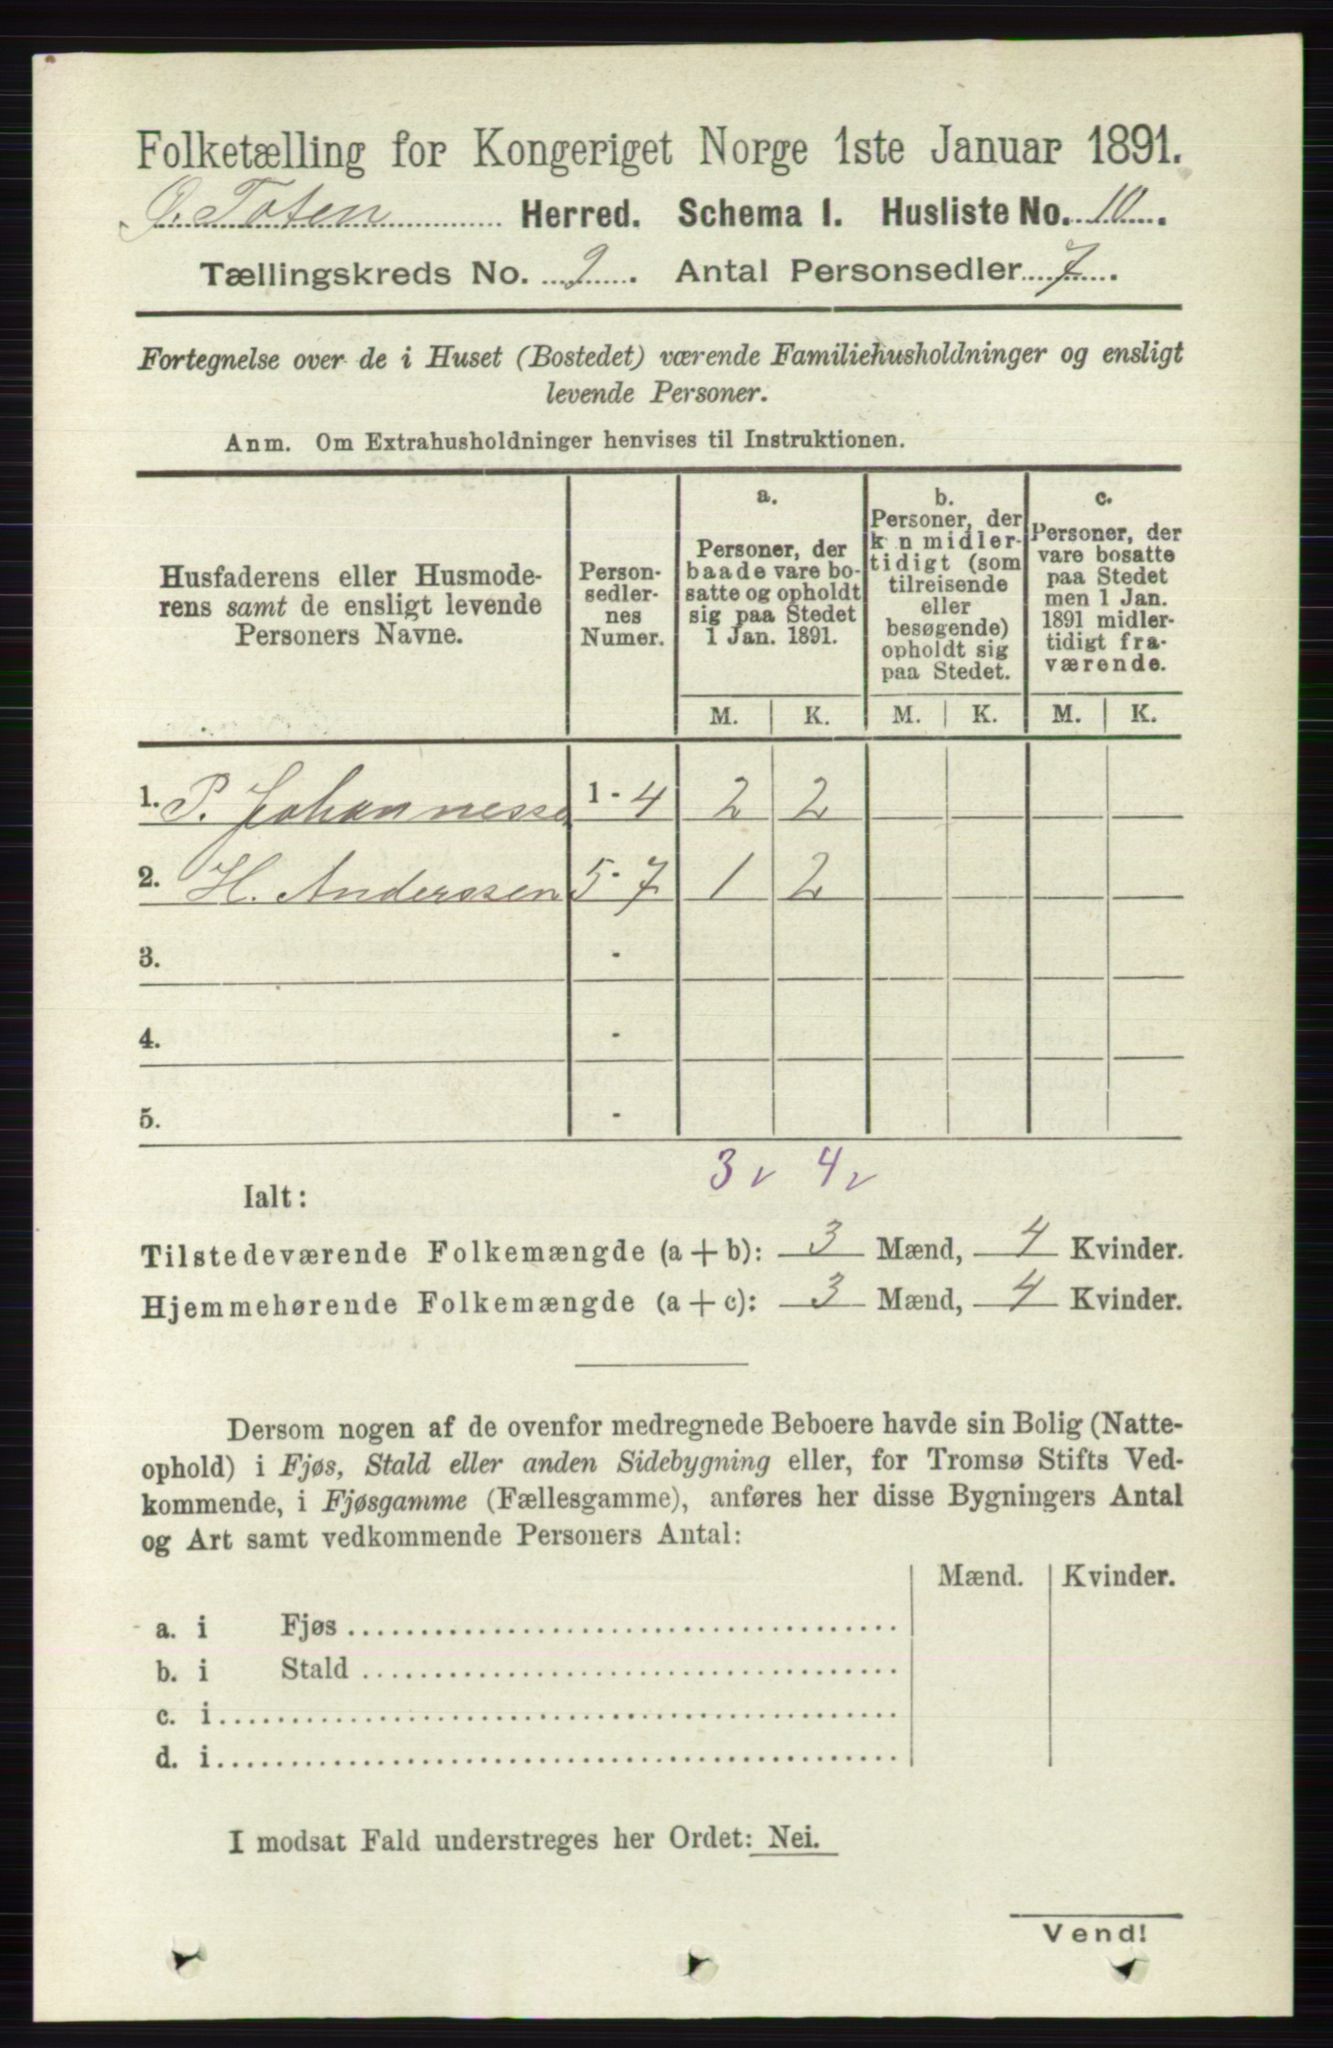 Folketælling for Kongeriget Norge 1ste Januar 1891.
Ø. Toten Herred. Schema I. Husliste No. 10.
Tællingskreds No. 2. Antal Personsedler 7.
Fortegnelse over de i Huset (Bostedet) værende Familiehusholdninger og ensligt
levende Personer.
Anm. Om Extrahusholdninger henvises til Instruktionen.
Husfaderens eller Husmode-
rens samt de ensligt levende
Personers Navne.
Person-
sedler-
nes
Numer.
a.
Personer, der
baade vare bo-
satte og opholdt
sig paa Stedet
1 Jan. 1891.
b.
Personer, der
k n midler-
tidigt (som
tilreisende
eller
besøgende)
opholdt sig
paa Stedet.
c.
Personer, der
vare bosatte
paa Stedet
men 1 Jan.
1891 midler-
tidigt fra-
værende.
M. K. M. K. M. K.
1. P. Johannesse 1 - 4 2 2
2. H. Anderssen 5 - 7 1 2
3. -
4. -
5. -
3 v 4 v
Ialt:
Tilstedeværende Folkemængde (a + b): 3 Mænd, 4 Kvinder.
Hjemmehørende Folkemængde (a + c): 3 Mænd, 4 Kvinder.
Dersom nogen af de ovenfor medregnede Beboere havde sin Bolig (Natte-
ophold) i Fjøs, Stald eller anden Sidebygning eller, for Tromsø Stifts Ved-
kommende, i Fjøsgamme (Fællesgamme), anføres her disse Bygningers Antal
og Art samt vedkommende Personers Antal:
Mænd. Kvinder.
a. i Fjøs
b. i Stald
c. i
d. i
I modsat Fald understreges her Ordet: Nei.
Vend!